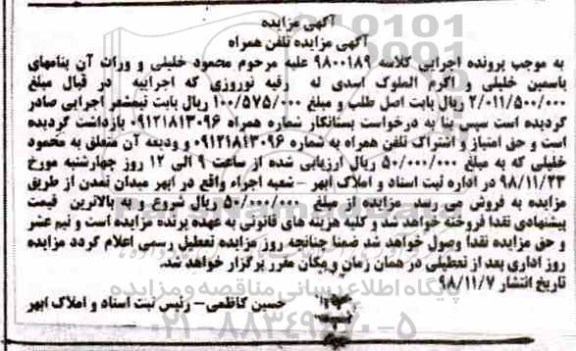 آگهی مزایده
آگهی مزایده تلفن همراه
به موجب پرونده اجرایی کلاسه ۹۸۰۰۱۸۹ علیه مرحوم محمود خلیلی و وراث آن بنامهای
یاسمین خلیلی و اکرم الملوک اسدی له رقیه نوروزی که اجراییه در قبال مبلغ
۲/۰۱۱/۵۰۰/۰۰۰ ریال بابت اصل طلب و مبلغ ۱۰۰/۵۷۵/۰۰۰ ریال بابت نیمشعر اجرایی صادر
گردیده است سپس بنا به درخواست بستانکار شماره همراه ۰۹۱۲۱۸۱۳۰۹۶ بازداشت گردیده
است و حق امتیاز و اشتراک تلفن همراه به شماره ۰۹۱۲۱۸۱۳۰۹۶ و ودیعه آن متعلق به محمود
خلیلی که به مبلغ ۵۰/۰۰۰/۰۰۰ ریال ارزیابی شده از ساعت ۹ الی ۱۲ روز چهارشنبه مورخ
۹۸/۱۱/۲۳ در اداره ثبت اسناد و املاک ابهر – شعبه اجراء واقع در ابهر میدان تمدن از طریق
مزایده به فروش می رسد مزایده از مبلغ ۵۰/۰۰۰/۰۰۰ ریال شروع و به بالاترین قیمت
پیشنهادی نقدا فروخته خواهد شد و کلیه هزینه های قانونی به عهده برنده مزایده است و نیم عشر
و حق مزایده نقدا وصول خواهد شد ضمنا چنانچه روز مزایده تعطیل رسمی اعلام گردد مزایده
روز اداری بعد از تعطیلی در همان زمان و مکان مقرر برگزار خواهد شد.
تاریخ انتشار ۹۸/۱۱/۷
پایگاه اطلاع رسانی مناقصه و مزایده
حسین کاظمی – رئیس ثبت اسناد و املاک ابهر
۰۲۱-۸۸۳۴۹۶۷۰-۵